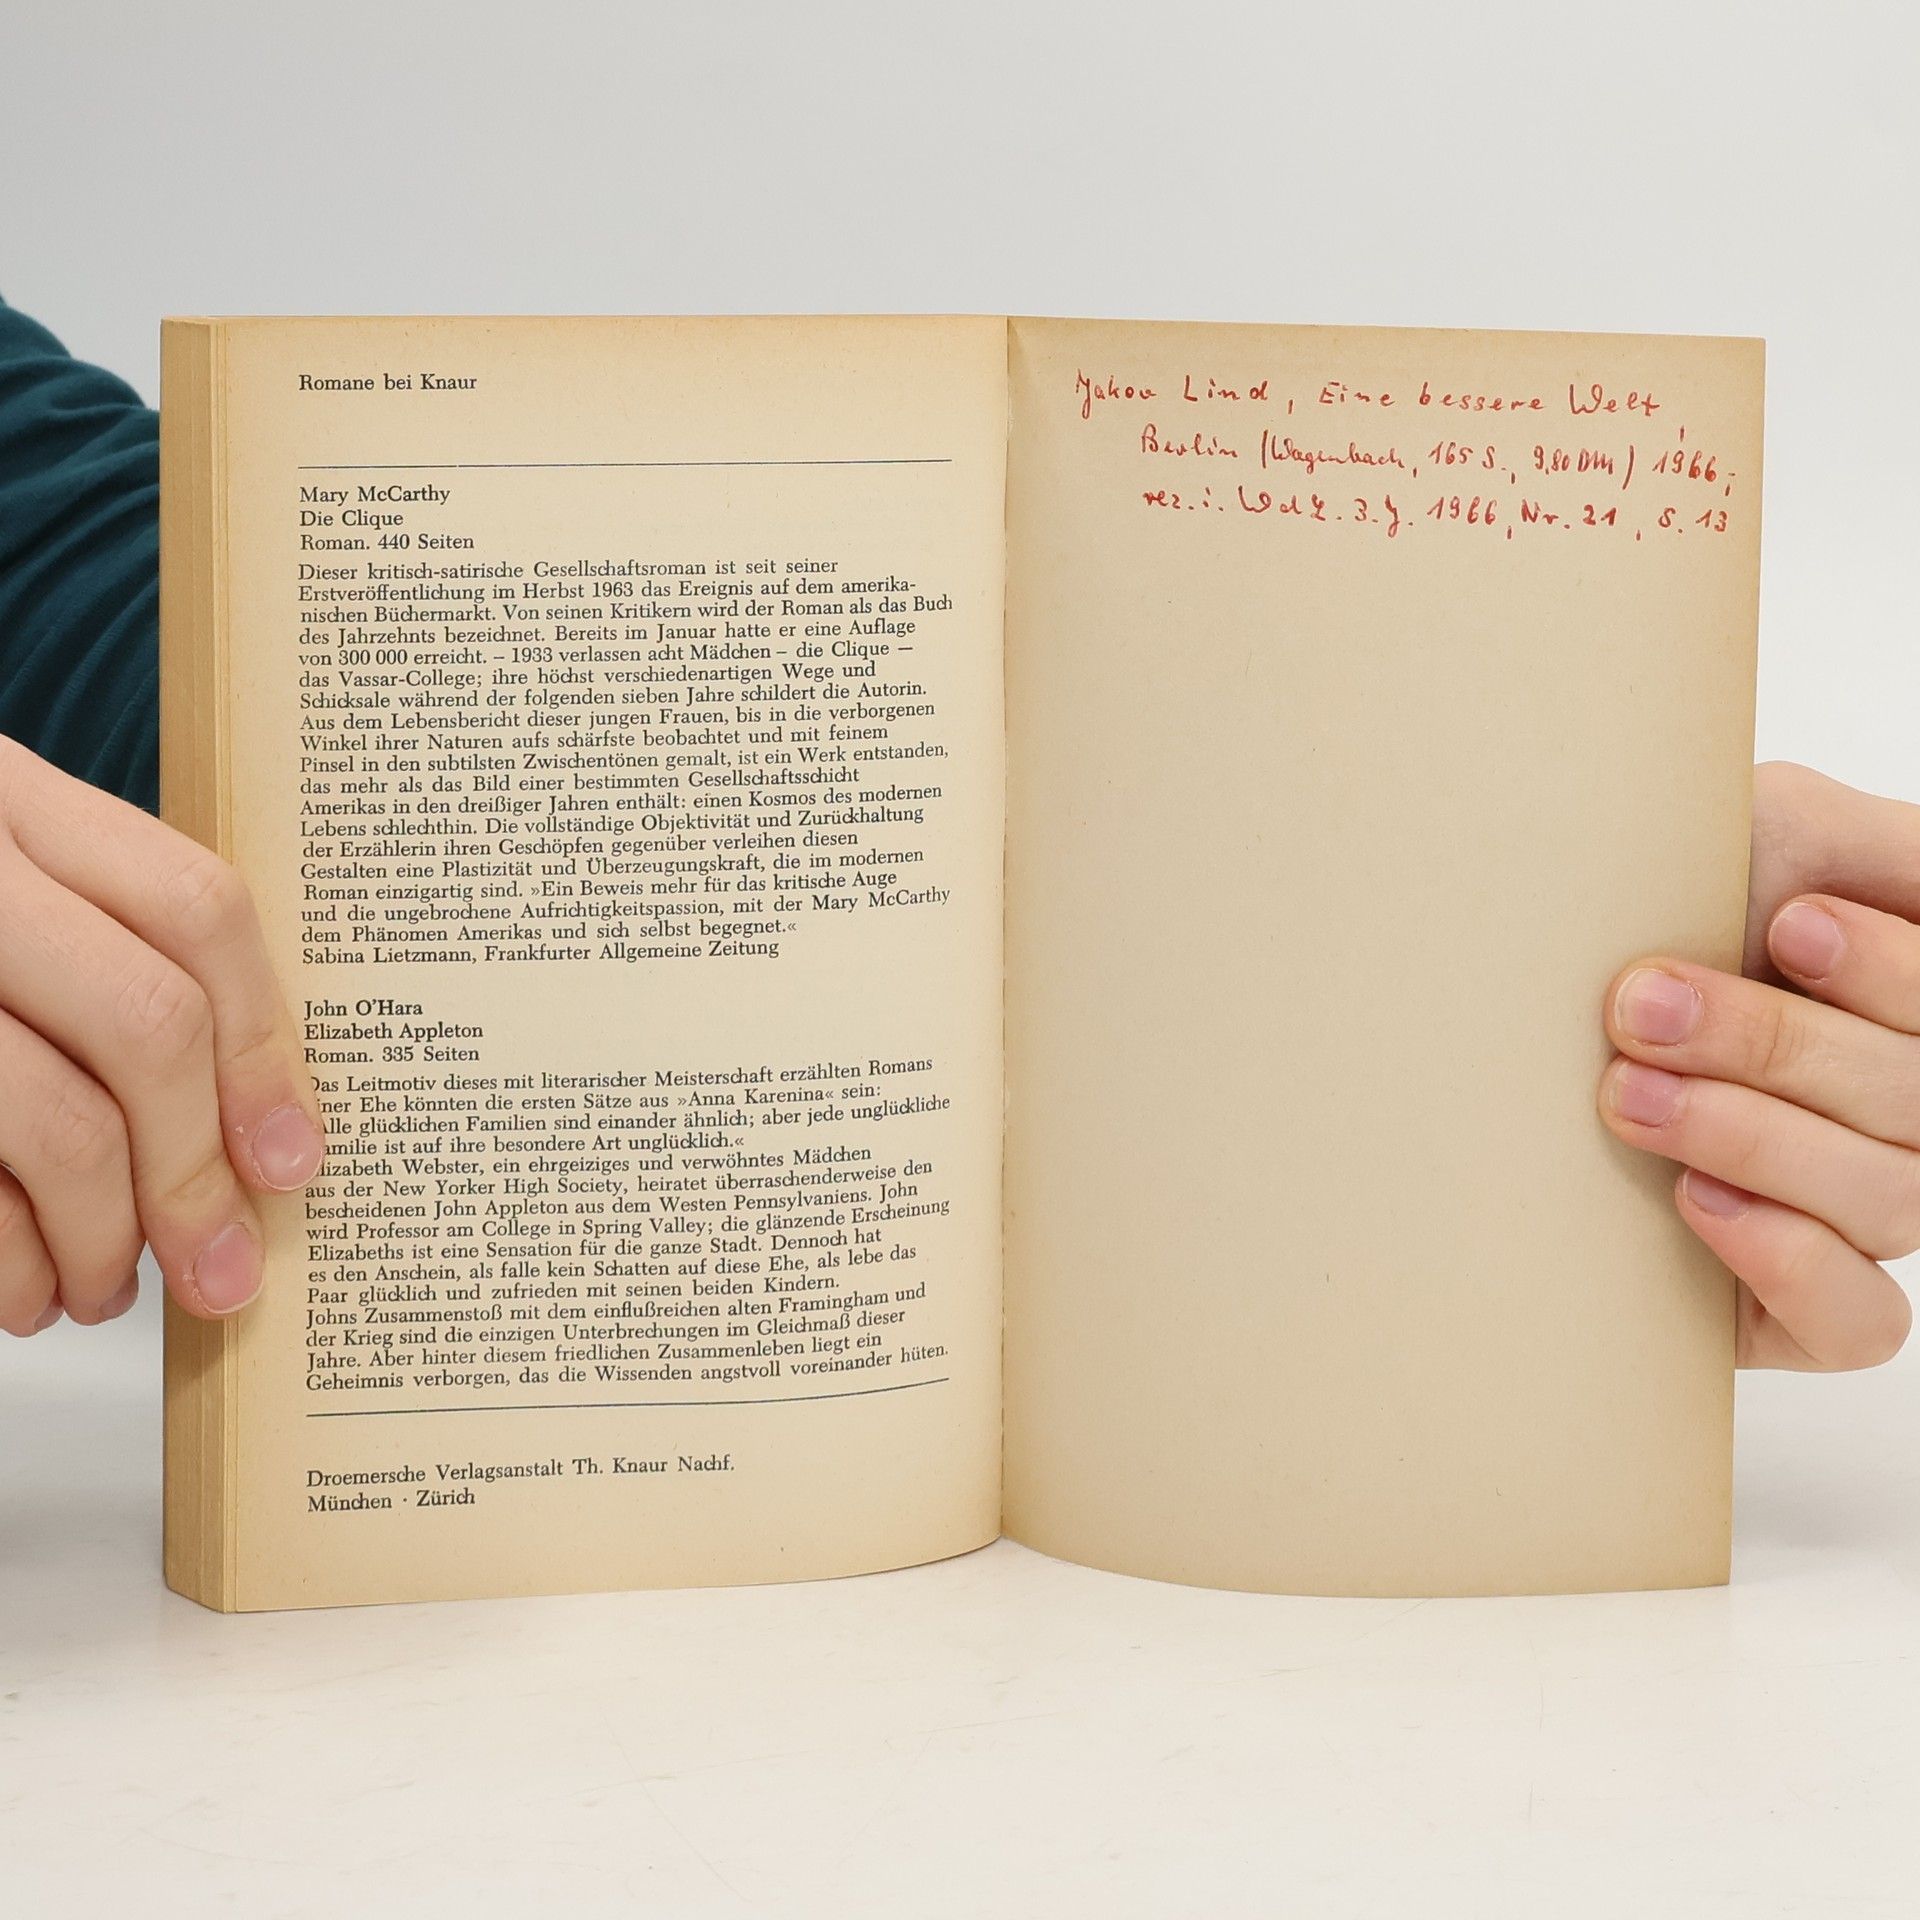 Romane bei Knaur
Mary McCarthy
Die Clique
Roman. 440 Seiten
Dieser kritisch-satirische Gesellschaftsroman ist seit seiner
Erstveröffentlichung im Herbst 1963 das Ereignis auf dem amerika-
nischen Büchermarkt. Von seinen Kritikern wird der Roman als das Buch
des Jahrzehnts bezeichnet. Bereits im Januar hatte er eine Auflage
von 300 000 erreicht. – 1933 verlassen acht Mädchen – die Clique —
das Vassar-College; ihre höchst verschiedenartigen Wege und
Schicksale während der folgenden sieben Jahre schildert die Autorin.
Aus dem Lebensbericht dieser jungen Frauen, bis in die verborgenen
Winkel ihrer Naturen aufs schärfste beobachtet und mit feinem
Pinsel in den subtilsten Zwischentönen gemalt, ist ein Werk entstanden,
das mehr als das Bild einer bestimmten Gesellschaftsschicht
Amerikas in den dreißiger Jahren enthält: einen Kosmos des modernen
Lebens schlechthin. Die vollständige Objektivität und Zurückhaltung
der Erzählerin ihren Geschöpfen gegenüber verleihen diesen
Gestalten eine Plastizität und Überzeugungskraft, die im modernen
Roman einzigartig sind. »Ein Beweis mehr für das kritische Auge
und die ungebrochene Aufrichtigkeitspassion, mit der Mary McCarthy
dem Phänomen Amerikas und sich selbst begegnet.«
Sabina Lietzmann, Frankfurter Allgemeine Zeitung
John O'Hara
Elizabeth Appleton
Roman. 335 Seiten
Das Leitmotiv dieses mit literarischer Meisterschaft erzählten Romans
iner Ehe könnten die ersten Sätze aus »Anna Karenina« sein:
Alle glücklichen Familien sind einander ähnlich; aber jede unglückliche
amilie ist auf ihre besondere Art unglücklich.«
lizabeth Webster, ein ehrgeiziges und verwöhntes Mädchen
aus der New Yorker High Society, heiratet überraschenderweise den
bescheidenen John Appleton aus dem Westen Pennsylvaniens. John
wird Professor am College in Spring Valley; die glänzende Erscheinung
Elizabeths ist eine Sensation für die ganze Stadt. Dennoch hat
es den Anschein, als falle kein Schatten auf diese Ehe, als lebe das
Paar glücklich und zufrieden mit seinen beiden Kindern.
Johns Zusammenstoß mit dem einflußreichen alten Framingham und
der Krieg sind die einzigen Unterbrechungen im Gleichmaß dieser
Jahre. Aber hinter diesem friedlichen Zusammenleben liegt ein
Geheimnis verborgen, das die Wissenden angstvoll voreinander hüten.
Droemersche Verlagsanstalt Th. Knaur Nachf.
München · Zürich
Jakov Lind, Eine bessere Welt,
Berlin (Wagenbach, 165 S., 9,80 DM) 1966;
rez. i. WdL. 3. J. 1966, Nr. 21, S. 13